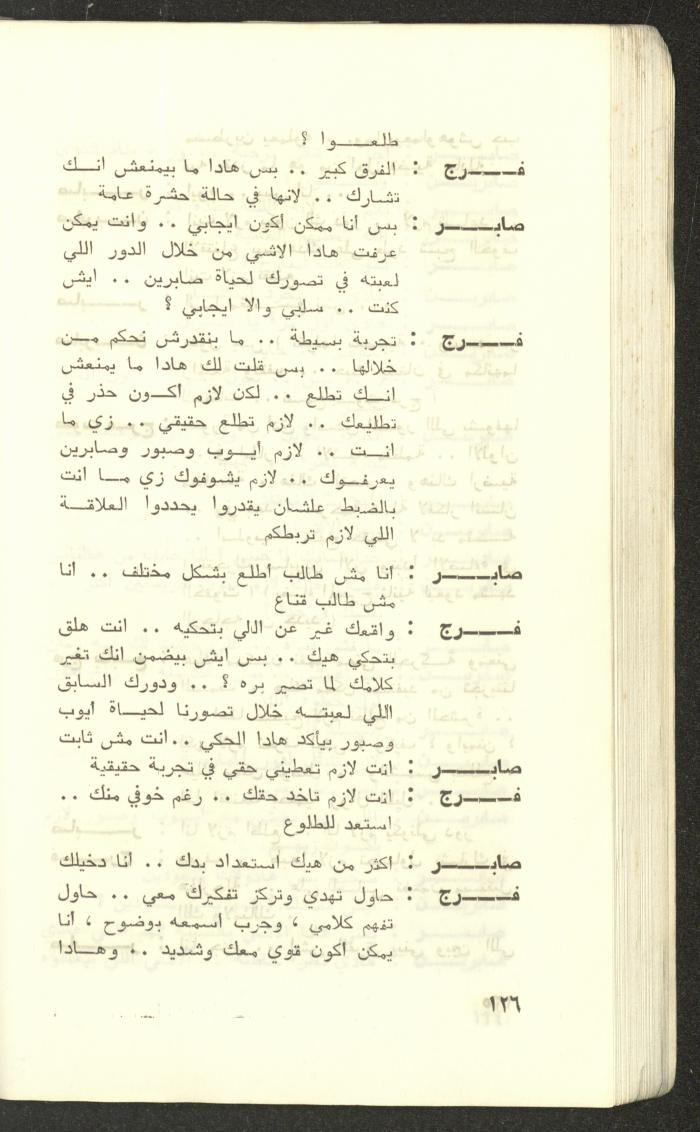 طلعـــوا ؟
فـــرج : الفرق كبير .. بس هادا ما بيمنعش انـــك
تشارك .. لانها في حالة حشرة عامة
صابـــر : بس أنا ممكن أكون ايجابي .. وانت يمكن
عرفت هادا الاشي من خلال الدور اللي
لعبته في تصورك لحياة صابرين .. ايش
كنت .. سلبي والا ايجابي ؟
فـــرج : تجربة بسيطة .. ما بنقدرش نحكم مـــن
خلالها .. بس قلت لك هادا ما يمنعش
انـــك تطلع .. لكن لازم أكـــون حذر في
تطليعك .. لازم تطلع حقيقي .. زي ما
انـــت .. لازم أيـــوب وصبور وصابرين
يعرفـــوك .. لازم يشوفوك زي مـــا انت
بالضبط علشان يقدروا يحددوا العلاقـــة
اللي لازم تربطكم
صابـــر : أنا مش طالب أطلع بشكل مختلف .. أنا
مش طالب قناع
فـــرج : واقعك غير عن اللي بتحكيه .. انت هلق
بتحكي هيك .. بس ايش بيضمن انك تغير
كلامك لما تصير بره ؟ .. ودورك السابق
اللي لعبتـــه خلال تصورنا لحيـــاة أيوب
وصبور بيأكد هادا الحكي ..انت مش ثابت
صابـــر : انت لازم تعطيني حقي في تجربة حقيقية
فـــرج : انت لازم تاخد حقك .. رغم خوفي منك ..
استعد للطلوع
صابـــر : اكثر من هيك استعداد بدك .. انا دخيلك
فـــرج : حاول تهدي وتركز تفكيرك معي .. حاول
تفهم كلامي ، وجرب اسمعه بوضوح ، أنا
يمكن أكون قوي معك وشديد .. وهـــادا
١٢٦